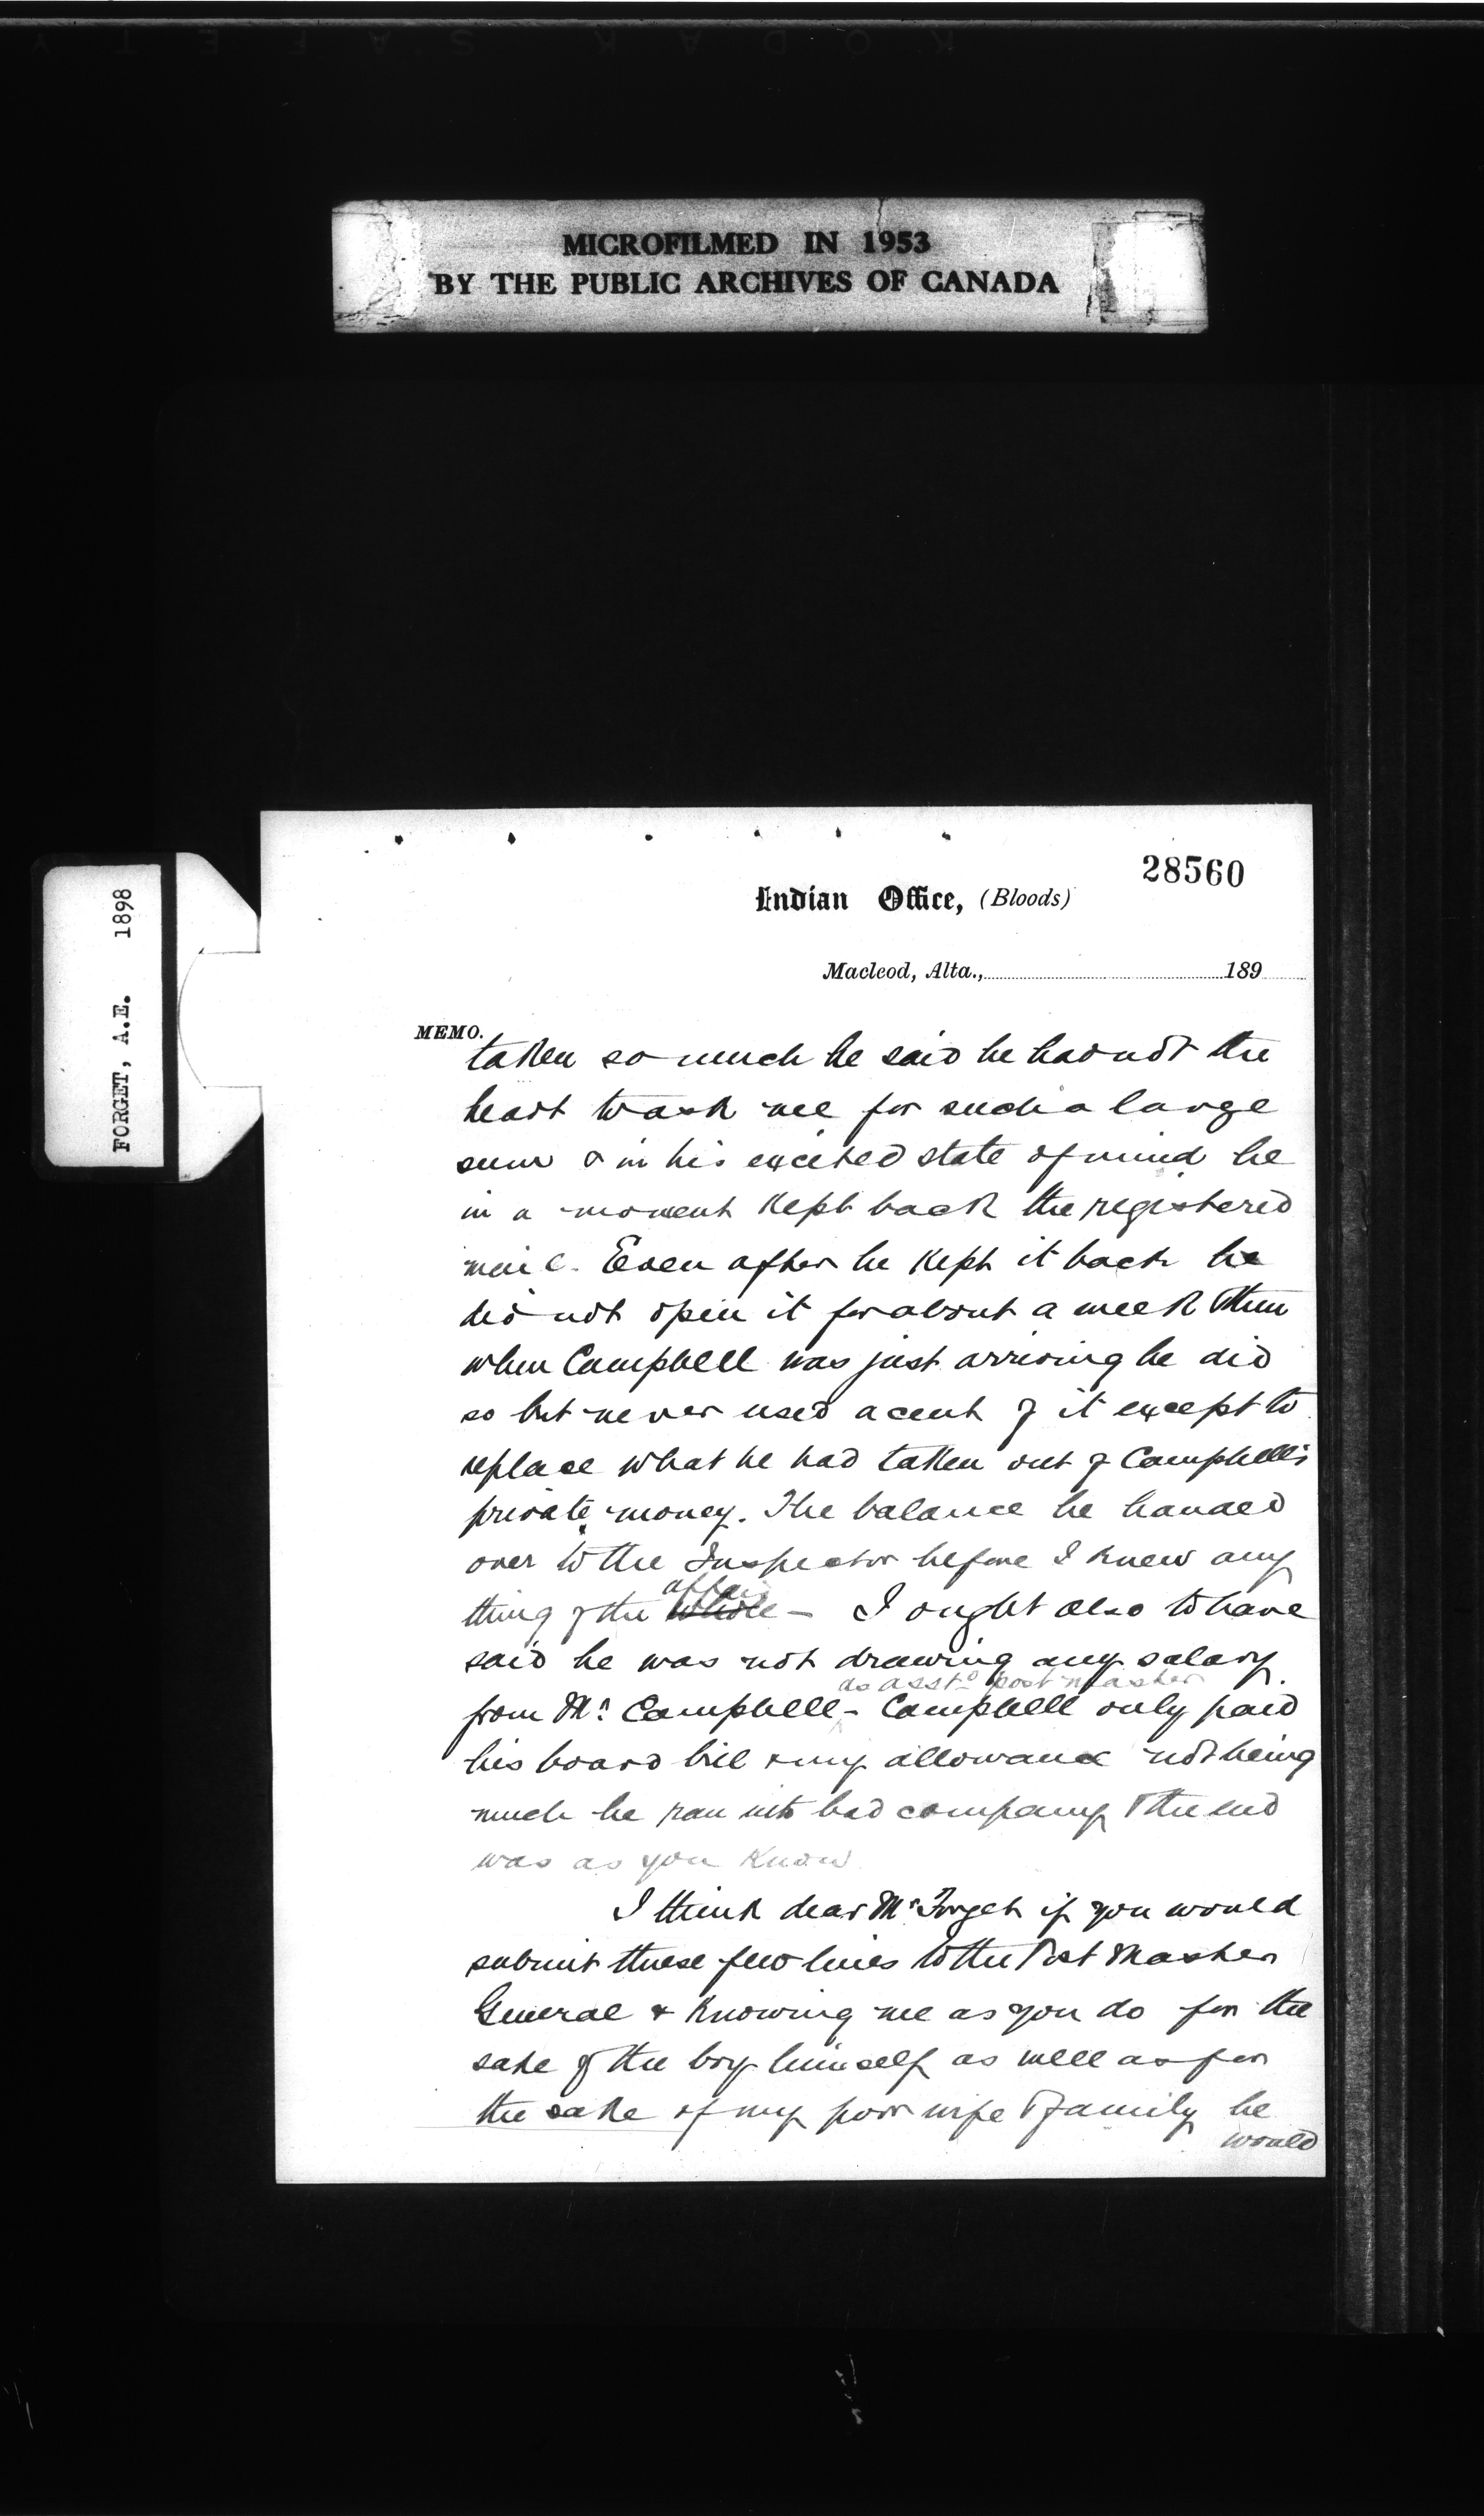 MICROFILMED IN 1953
BY THE PUBLIC ARCHIVES OF CANADA
FORGET, A.E. 1898
28560
Indian Office, (Bloods)
Macleod, Alta.,	189
MEMO.
taken so much he said he had not the
heart to ask me for such a large
sum & in his excited state of mind he
in a moment kept back the registered
mail. Even after he kept it back he
did not open it for about a week & then
when Campbell was just arriving he did
so but never used a cent of it except to
replace what he had taken out of Campbell's
private money. The balance he handed
over to the Inspector before I knew any
thing of the whole affair — I ought also to have
said he was not drawing any salary
as asst. post master
from Mr. Campbell - Campbell only paid
his board bill & my allowance not being
much he ran into bad company & the end
was as you know
I think dear Mr Forget if you would
submit these few lines to the Post Master
General & knowing me as you do for the
sake of the boy himself as well as for
the sake of my poor wife & family he
would